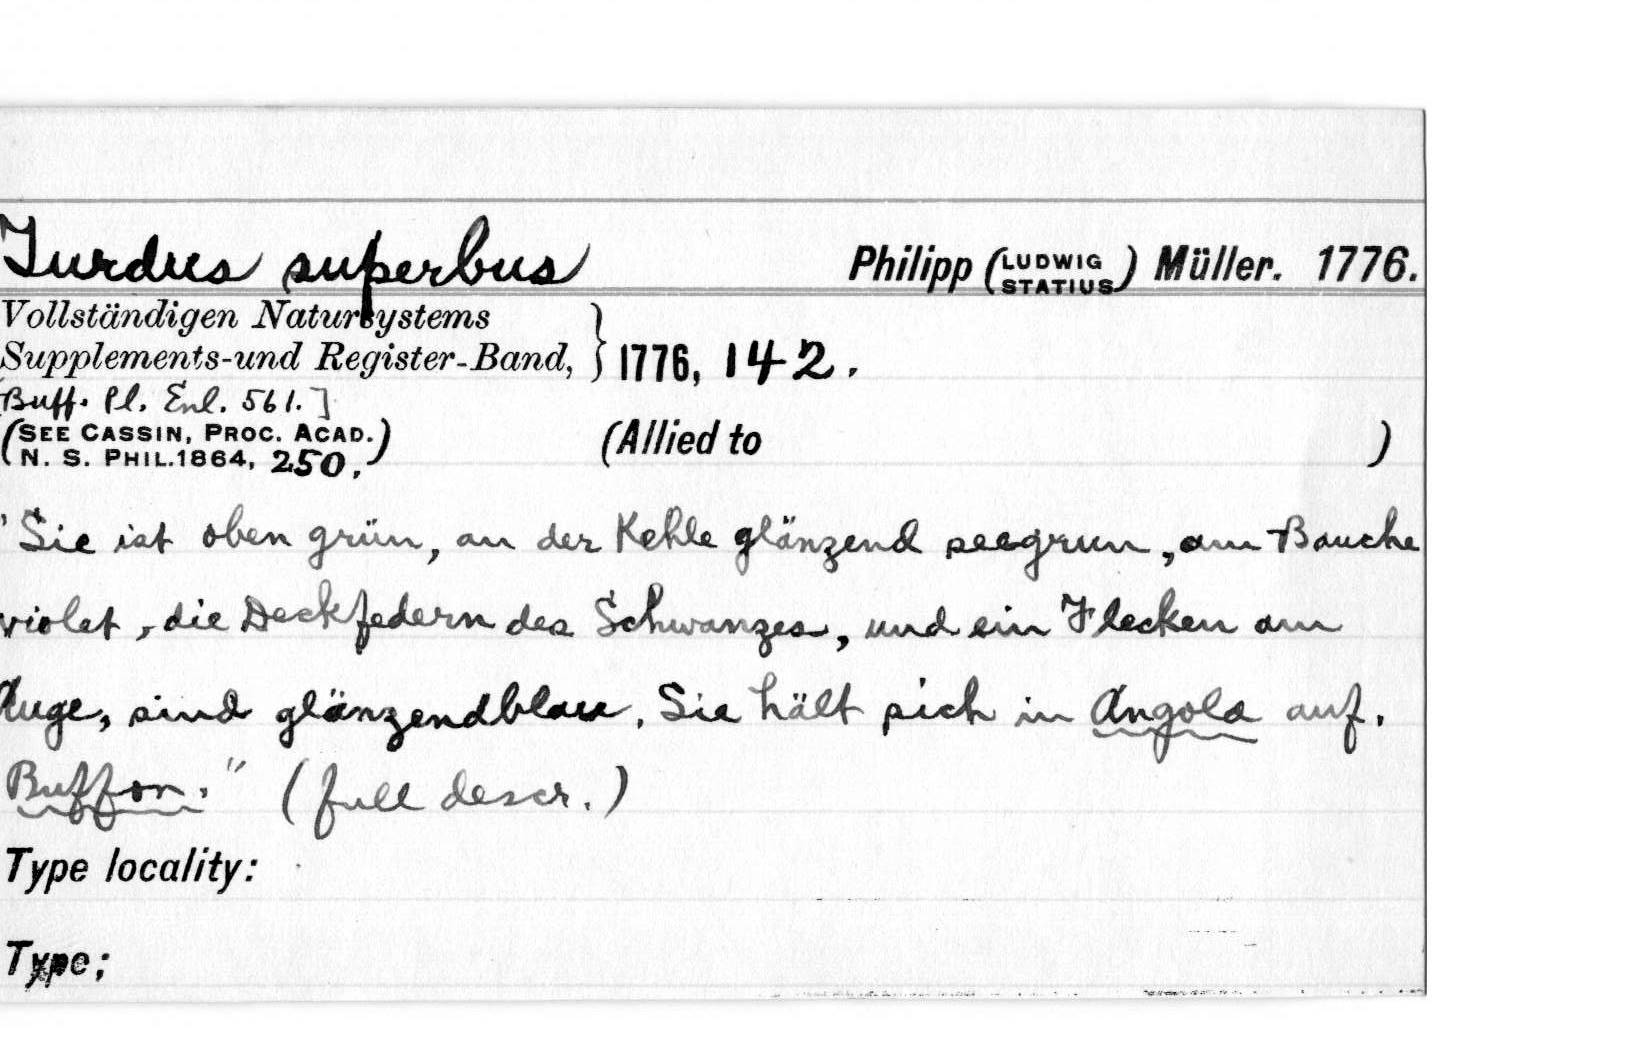 Turdus superbus Philipp (LUDWIG STATIUS) Müller. 1776.
Vollständigen Natursystems
Supplements-und Register-Band, } 1776, 142.
Buff. Pl. Enl. 561.]
(SEE CASSIN, PROC. ACAD. (Allied to )
N. S. PHIL. 1864, 250.)
"Sie ist oben grün, an der Kehle glänzend seegrun, am Bauche
violet, die Deckfedern des Schwanzes, und ein Flecken am
Auge, sind glänzendblau. Sie hält sich in Angola auf.
Buffon." (full descr.)
Type locality:
Type;